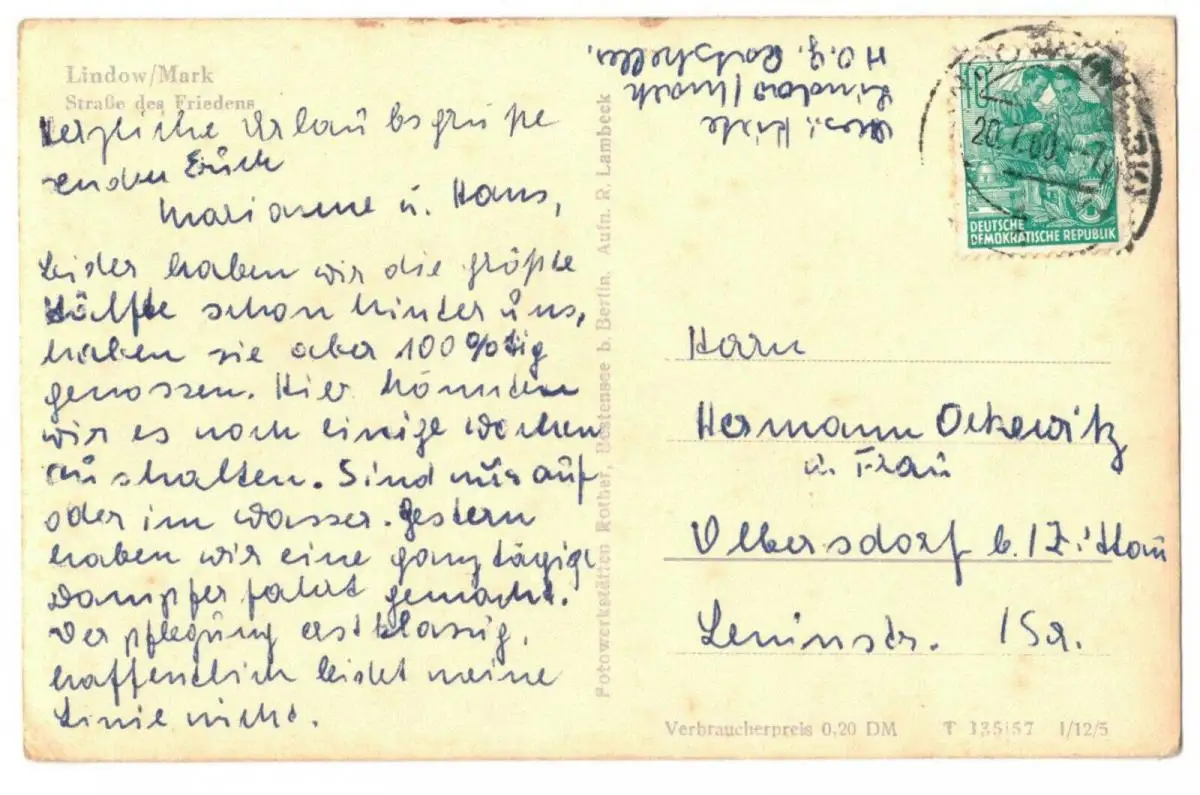 Lindow/Mark
Straße des Friedens
Herzliche Urlaubsgrüße
senden Euch
Marianne u. Hans,
Leider haben wir die größte
Hälfte schon hinter uns,
haben sie aber 100%tig
genossen. Hier könnten
wir es noch einige Wochen
aushalten. Sind nur auf
oder im Wasser. Gestern
haben wir eine ganztägige
Dampferfahrt gemacht.
Verpflegung erstklassig,
hoffentlich leidet meine
Linie nicht.
Lindow/Mark
H.O.G. Ratskeller
Fotowerkstätten Rother, Bestensee b. Berlin. Aufn. R. Lambeck
10
DEUTSCHE
DEMOKRATISCHE REPUBLIK
20.7.60
Herrn
Hermann Ockewitz
u. Frau
Olbersdorf b./Zittau
Leninstr.
Verbraucherpreis 0,20 DM T 135/57 1/12/5